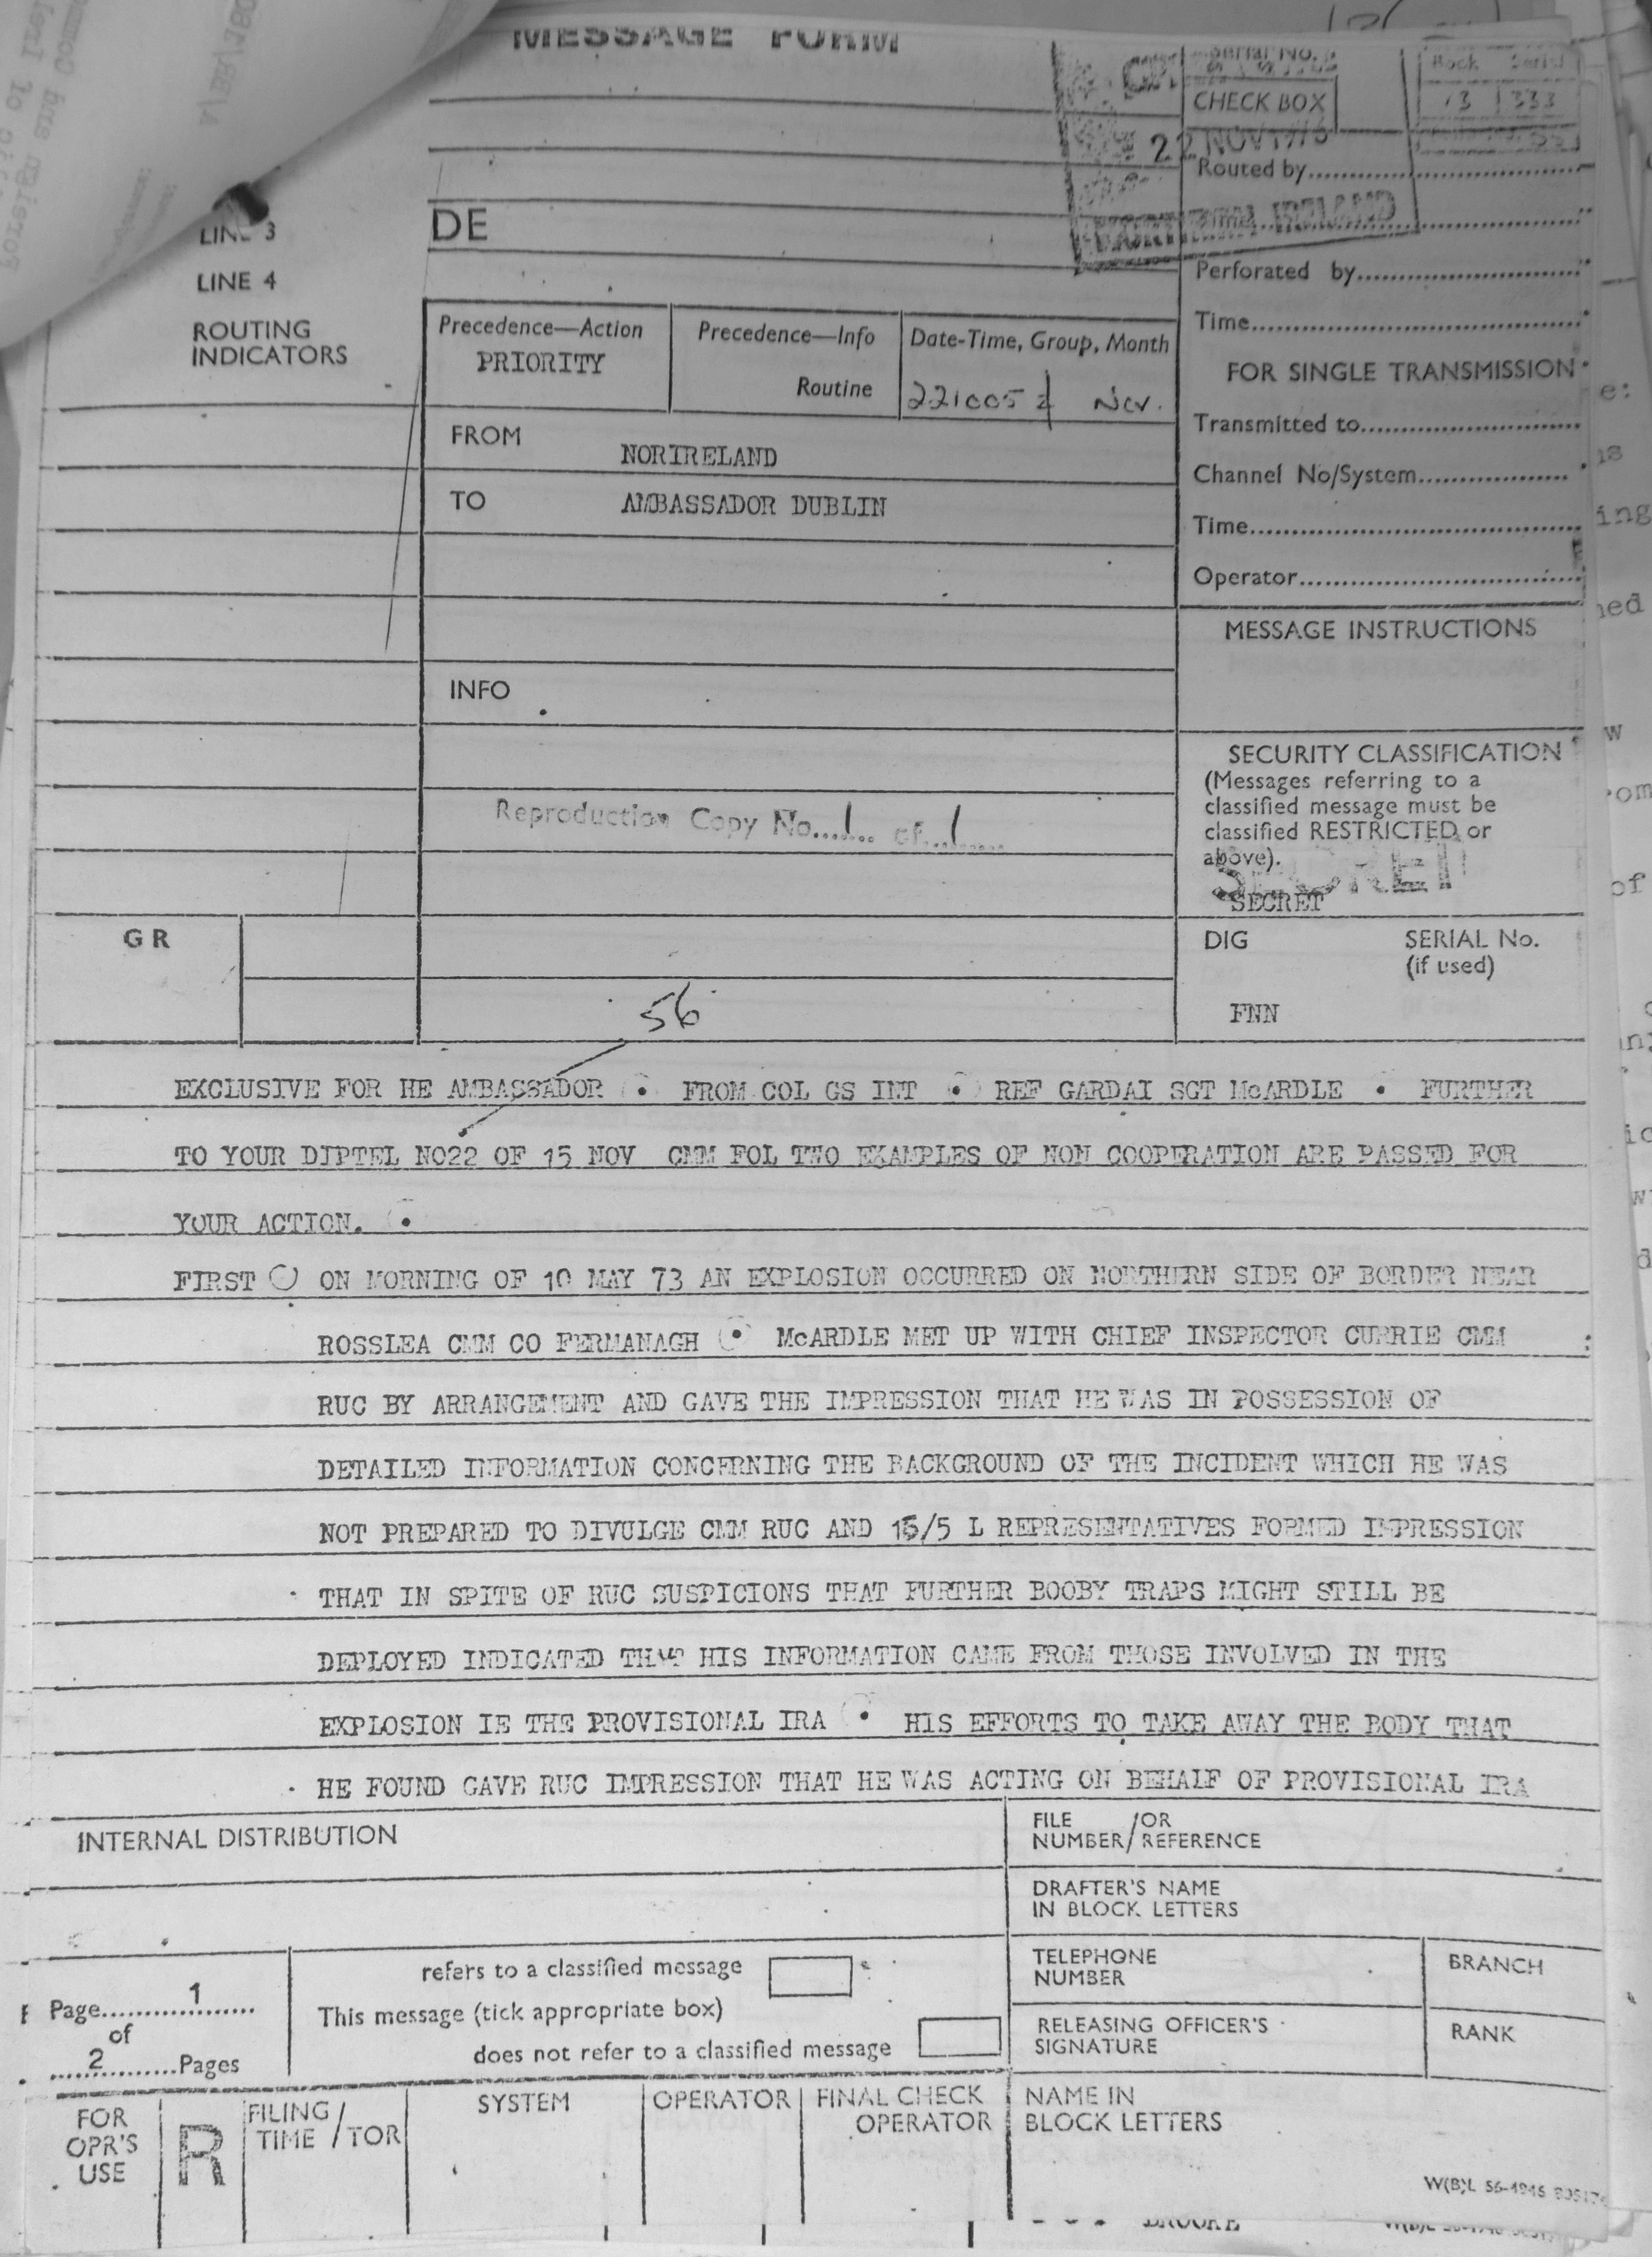 MESSAGE FORM
Serial No.
Book Serial
CHECK BOX
13 333
22 NOV 1973
Routed by
NORTHERN IRELAND
Time
LINE 3
DE
LINE 4
Perforated by
ROUTING INDICATORS
Precedence—Action
PRIORITY
Precedence—Info
Routine
Date-Time, Group, Month
221005 Z Nov.
Time
FOR SINGLE TRANSMISSION
FROM NORIRELAND
Transmitted to
Channel No/System
TO AMBASSADOR DUBLIN
Time
Operator
MESSAGE INSTRUCTIONS
INFO
SECURITY CLASSIFICATION
(Messages referring to a
classified message must be
classified RESTRICTED or
above).
SECRET
SECRET
Reproduction Copy No. 1 of 1
GR
DIG
SERIAL No.
(if used)
56
FNN
EXCLUSIVE FOR HE AMBASSADOR . FROM COL GS INT . REF GARDAI SGT McARDLE . FURTHER
TO YOUR DIPTEL NO22 OF 15 NOV CMM FOL TWO EXAMPLES OF NON COOPERATION ARE PASSED FOR
YOUR ACTION. .
FIRST ON MORNING OF 10 MAY 73 AN EXPLOSION OCCURRED ON NORTHERN SIDE OF BORDER NEAR
ROSSLEA CMM CO FERMANAGH . McARDLE MET UP WITH CHIEF INSPECTOR CURRIE CMM
RUC BY ARRANGEMENT AND GAVE THE IMPRESSION THAT HE WAS IN POSSESSION OF
DETAILED INFORMATION CONCERNING THE BACKGROUND OF THE INCIDENT WHICH HE WAS
NOT PREPARED TO DIVULGE CMM RUC AND 16/5 L REPRESENTATIVES FORMED IMPRESSION
THAT IN SPITE OF RUC SUSPICIONS THAT FURTHER BOOBY TRAPS MIGHT STILL BE
DEPLOYED INDICATED THAT HIS INFORMATION CAME FROM THOSE INVOLVED IN THE
EXPLOSION IE THE PROVISIONAL IRA . HIS EFFORTS TO TAKE AWAY THE BODY THAT
HE FOUND GAVE RUC IMPRESSION THAT HE WAS ACTING ON BEHALF OF PROVISIONAL IRA
INTERNAL DISTRIBUTION
FILE /OR
NUMBER/ REFERENCE
DRAFTER'S NAME
IN BLOCK LETTERS
Page 1
of
2 Pages
refers to a classified message
This message (tick appropriate box)
does not refer to a classified message
TELEPHONE
NUMBER
BRANCH
RELEASING OFFICER'S
SIGNATURE
RANK
FOR
OPR'S
USE
R
FILING /
TIME /TOR
SYSTEM
OPERATOR
FINAL CHECK
OPERATOR
NAME IN
BLOCK LETTERS
W(B)L 56-4946
BROOKE